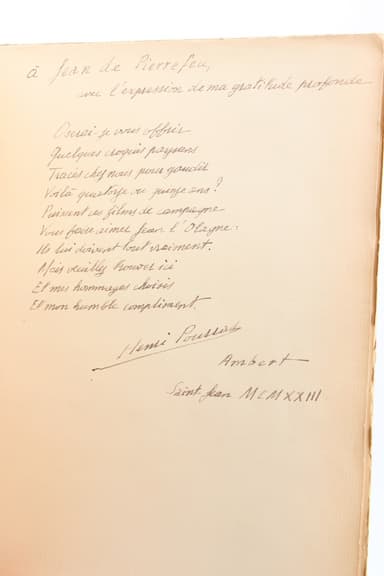 à Jean de Pierrefeu,
avec l'expression de ma gratitude profonde
Osrai-je vous offrir
Quelques croquis paysans
Tracés chez nous pour gaudir
Voilà quatorze ou quinze ans ?
Puissent ces films de campagne
Vous faire aimer Jean l'Olagne :
Ils lui doivent tout vraiment.
Mais veuillez trouver ici
Et mes hommages choisis
Et mon humble compliment.
Henri Pourrat
Ambert
Saint Jean MCMXXIII